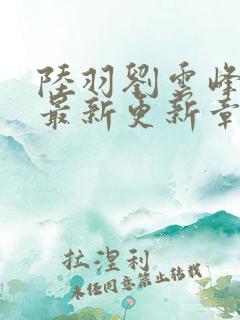 陸羽劉雲峰
最新更新章
拉涅利
未经同意禁止转载